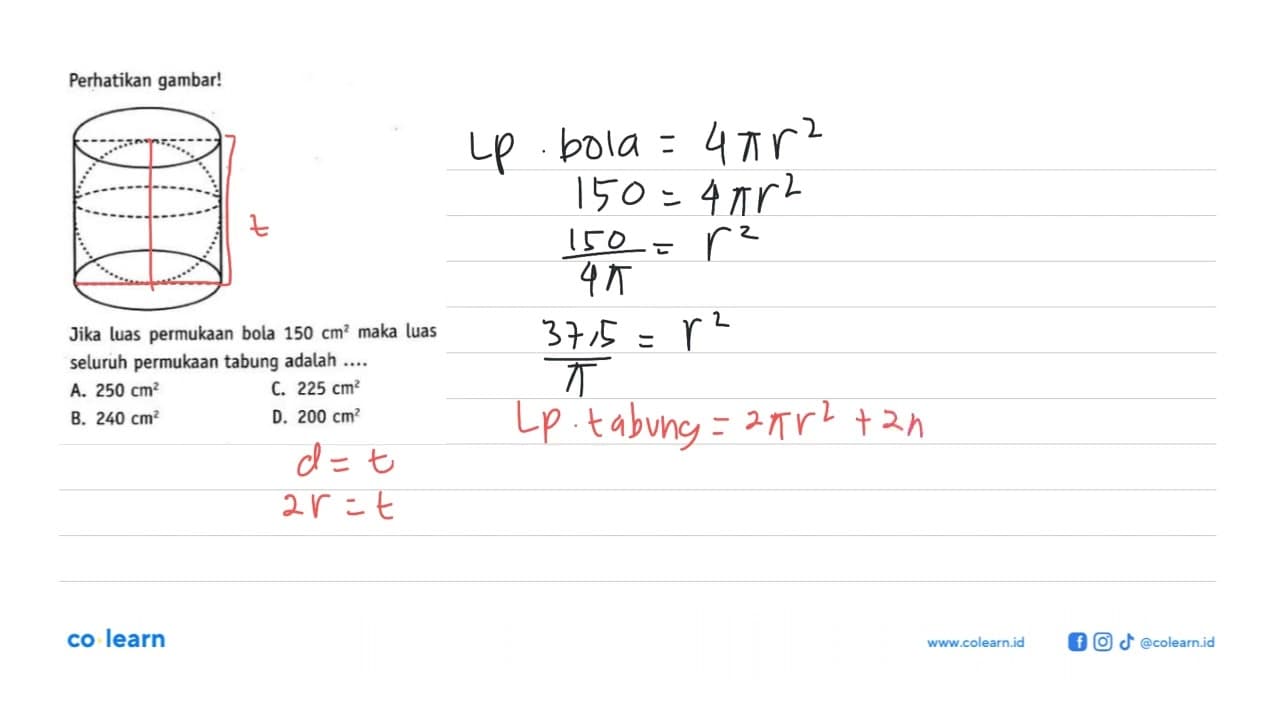 Perhatikan gambar!
t
Jika luas permukaan bola 150 cm² maka luas
seluruh permukaan tabung adalah ....
A. 250 cm² C. 225 cm²
B. 240 cm² D. 200 cm²
d = t
2r = t
Lp . bola = 4πr²
150 = 4πr²
150/4π = r²
37,5/π = r²
Lp . tabung = 2πr² + 2
co learn
www.colearn.id @colearn.id